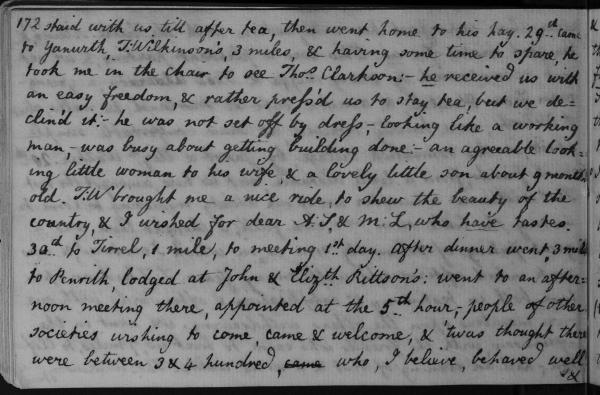 172 staid with us till after tea, then went home to his hay. 29th. came
to Yanwrth, T: Wilkinson's, 3 miles, & having some time to spare, he
took me in the chair to see Thos. Clarkson:- he received us with
an easy freedom, & rather press'd us to stay tea, but we de-
clin'd it:- he was not set off by dress,- looking like a working
man,- was busy about getting building done:- an agreeable look-
ing little woman to his wife, & a lovely little son about 9 months
old. T:W brought me a nice ride, to shew the beauty of the
country, & I wished for dear A:S, & M:L, who have tastes.
30th. to Tirrel, 1 mile, to meeting 1st. day. after dinner went, 3 mile
to Penrith, lodged at John & Elizth. Rittson's: went to an after-
noon meeting there, appointed at the 5th hour,- people of other
societies wishing to come, came & welcome, & 'twas thought there
were between 3 & 4 hundred, came who, I believe, behaved well
&